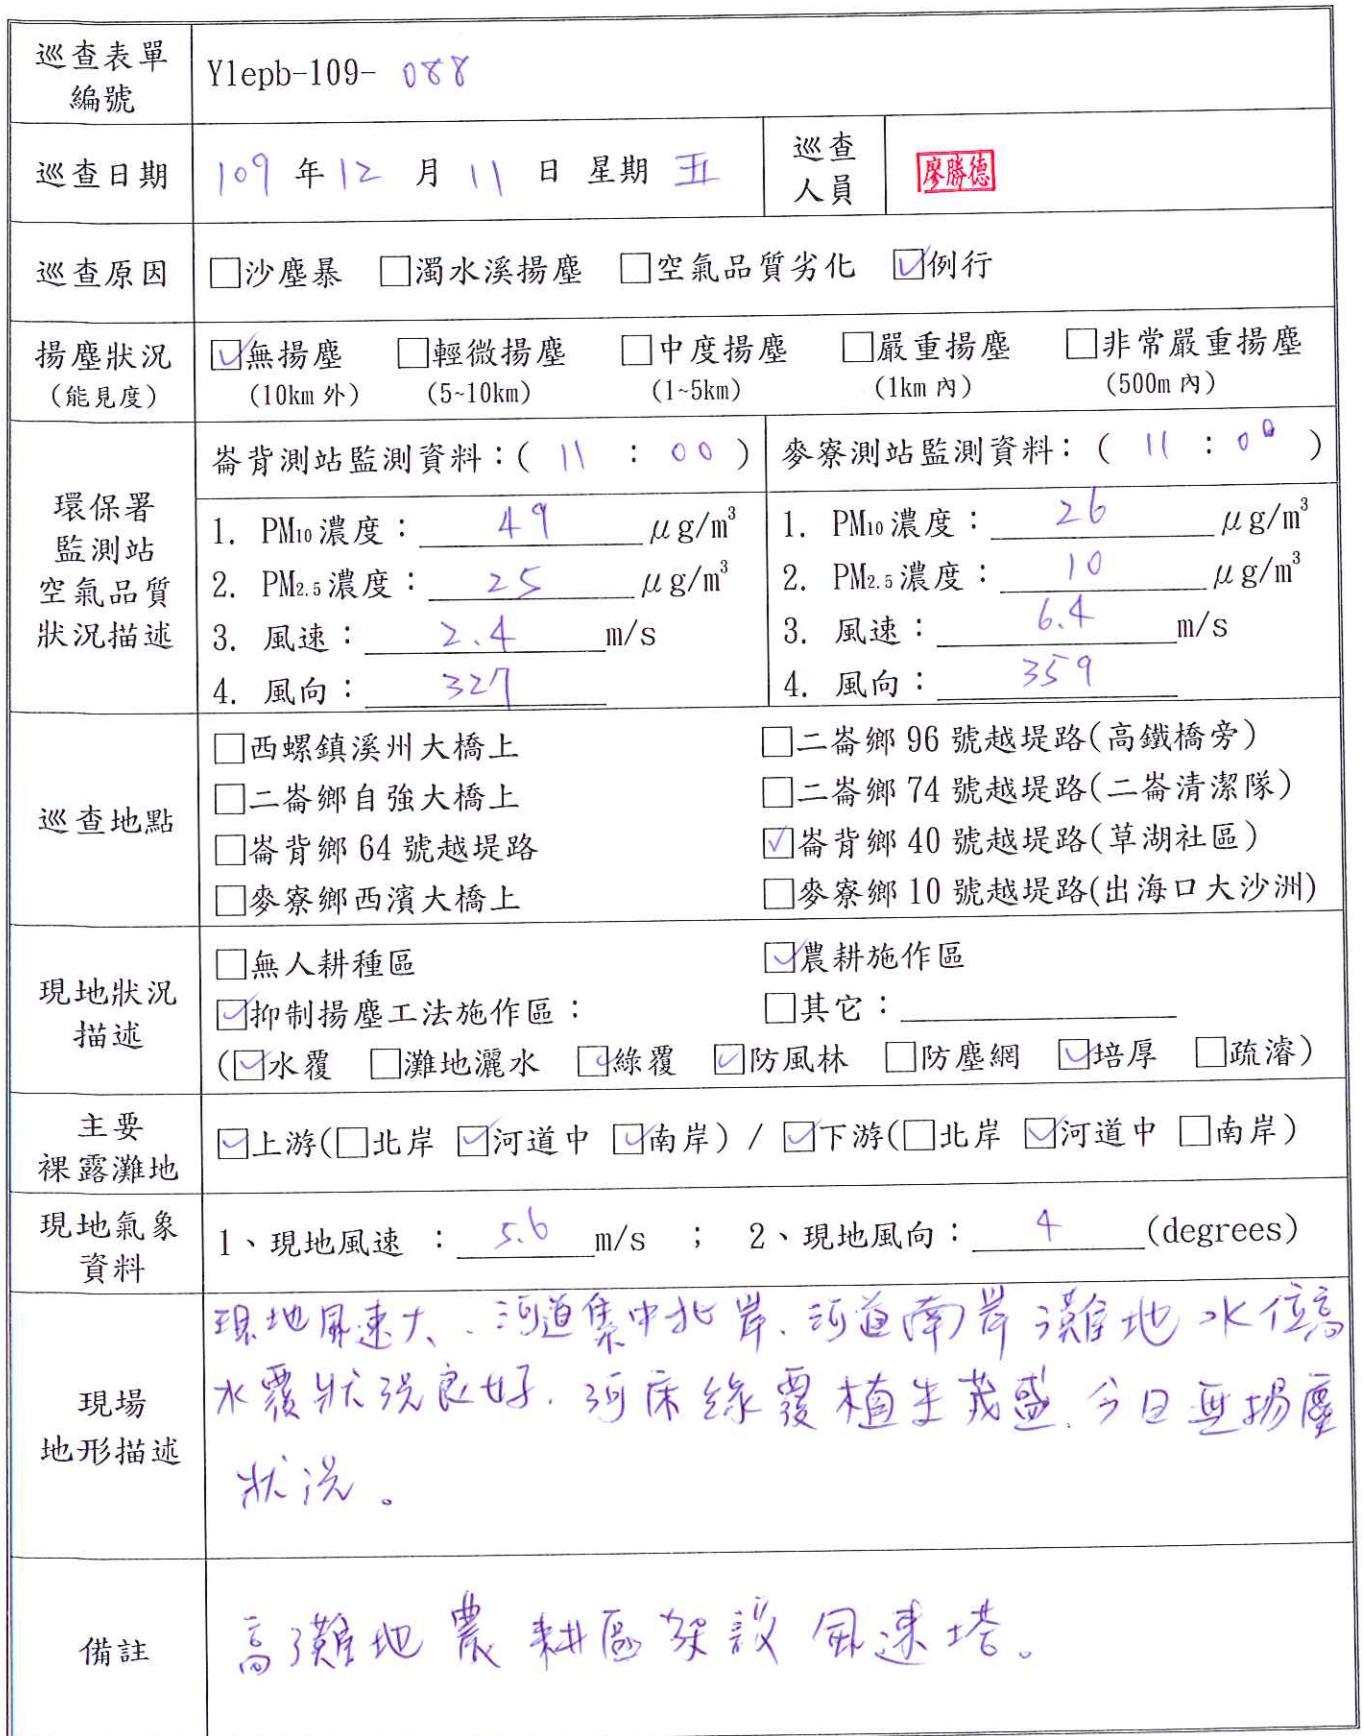 巡查表單
編號
Ylepb-109- 088
巡查日期
109 年 12 月 11 日 星期 五
巡查
人員
廖勝德
巡查原因
□沙塵暴 □濁水溪揚塵 □空氣品質劣化 ☑例行
揚塵狀況
(能見度)
☑無揚塵 □輕微揚塵 □中度揚塵 □嚴重揚塵 □非常嚴重揚塵
(10km 外) (5~10km) (1~5km) (1km 內) (500m 內)
環保署
監測站
空氣品質
狀況描述
崙背測站監測資料：( 11 : 00 )
1. PM10 濃度： 49 μg/m³
2. PM2.5 濃度： 25 μg/m³
3. 風速： 2.4 m/s
4. 風向： 327
麥寮測站監測資料： ( 11 : 00 )
1. PM10 濃度： 26 μg/m³
2. PM2.5 濃度： 10 μg/m³
3. 風速： 6.4 m/s
4. 風向： 359
巡查地點
□西螺鎮溪州大橋上 □二崙鄉 96 號越堤路(高鐵橋旁)
□二崙鄉自強大橋上 □二崙鄉 74 號越堤路(二崙清潔隊)
□崙背鄉 64 號越堤路 ☑崙背鄉 40 號越堤路(草湖社區)
□麥寮鄉西濱大橋上 □麥寮鄉 10 號越堤路(出海口大沙洲)
現地狀況
描述
□無人耕種區 ☑農耕施作區
☑抑制揚塵工法施作區： □其它：
(☑水覆 □灘地灑水 ☑綠覆 ☑防風林 □防塵網 ☑培厚 □疏濬)
主要
裸露灘地
☑上游(□北岸 ☑河道中 ☑南岸) / ☑下游(□北岸 ☑河道中 □南岸)
現地氣象
資料
1、現地風速 ： 5.6 m/s ； 2、現地風向： 4 (degrees)
現場
地形描述
現地風速大、河道集中北岸、河道南岸灘地水位高
水覆狀況良好、河床綠覆植生茂盛、今日無揚塵
狀況。
備註
高灘地農耕區架設風速塔。